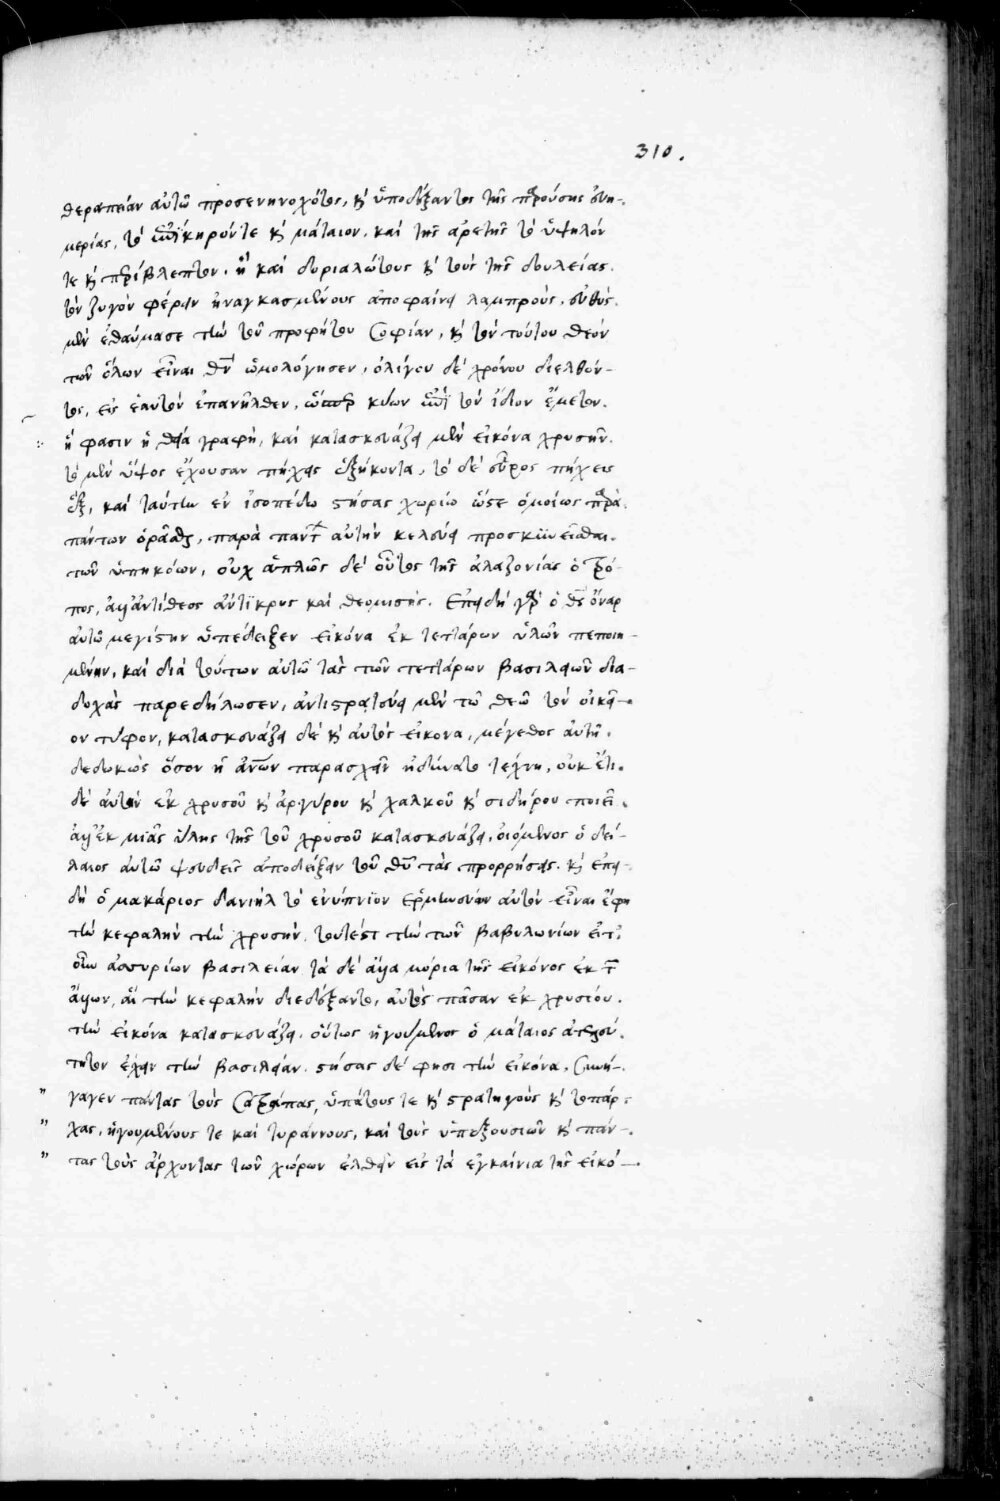 310.
θεραπείαν αὐτῶ προσενηνοχότος, κ ὑποδείξαντος τῆς παρούσης εὐη-
μερίας, τὸ ἐπίκηρόν τε κ μάταιον. καὶ τῆς ἀρετῆς τὸ ὑψηλόν
τε κ περίβλεπτον. ἣ καὶ δοριαλώτους κ τοὺς τῆς δουλείας.
τὸν ζυγὸν φέρειν ἠναγκασμένους ἀποφαίνει λαμπροὺς. εὐθὺς.
μὲν ἐθαύμασε τὴν τοῦ προφήτου σοφίαν, κ τὸν τούτου θεὸν
τῶν ὅλων εἶναι θν ὡμολόγησεν, ὀλίγου δὲ χρόνου διελθόν-
τος, εἰς ἑαυτὸν ἐπανῆλθεν, ὥσπερ κύων ἐπὶ τὸν ἴδιον ἔμετον.
ἧ φασιν ἡ θεία γραφὴ, καὶ κατασκευάζει μὲν εἰκόνα χρυσῆν.
τὸ μὲν ὕψος ἔχουσαν πήχεις ἑξήκοντα, τὸ δὲ εὖρος πήχεις
ἓξ, καὶ ταύτην ἐν ἰσοπέδω στήσας χωρίω ὥστε ὁμοίως παρὰ
πάντων ὁρᾶσθαι, παρὰ πάντων αὐτὴν κελεύει προσκυνεῖσθαι.
τῶν ὑπηκόων, οὐχ ἁπλῶς δὲ οὗτος τῆς ἀλαζονίας ὁ τρό-
πος, ἀλλ' ἀντίθεος ἄντικρυς καὶ θεομισής. Ἐπειδὴ γὰρ ὁ θς ὄναρ
αὐτῶ μεγίστην ὑπέδειξεν εἰκόνα ἐκ τεττάρων ὑλῶν πεποιη-
μένην, καὶ διὰ τούτων αὐτῶ τὰς τῶν τεττάρων βασιλειῶν δια-
δοχὰς παρεδήλωσεν, ἀντιστρατεύει μὲν τῶ θεῶ τὸν οἰκεῖ-
ον τύφον, κατασκευάζει δὲ κ αὐτὸς εἰκόνα, μέγεθος αὐτῆ.
δεδωκὼς ὅσον ἡ ἀνων παρασχεῖν ἠδύνατο τέχνη, οὐκ ἔτι.
δὲ αὐτὴν ἐκ χρυσοῦ κ ἀργύρου κ χαλκοῦ κ σιδήρου ποιεῖ.
ἀλλ' ἐκ μιᾶς ὕλης τῆς τοῦ χρυσοῦ κατασκευάζει. οἰόμενος ὁ δεί-
λαιος αὐτῶ ψευδεῖς ἀποδείξειν τοῦ θυ τὰς προρρήσεις. κ ἐπει-
δὴ ὁ μακάριος δανιὴλ τὸ ἐνύπνιον ἑρμηνεύων αὐτὸν εἶναι ἔφη
τὴν κεφαλὴν τὴν χρυσῆν. τουτέστι τὴν τῶν βαβυλωνίων εἴτ'
οὖν ἀσσυρίων βασιλείαν. τὰ δὲ ἄλλα μόρια τῆς εἰκόνος ἐκ τῶν
ἄλλων, αἳ τὴν κεφαλὴν διεδέξαντο, αὐτὸς πᾶσαν ἐκ χρυσίου.
τὴν εἰκόνα κατασκευάζει. οὕτως ἡγούμενος ὁ μάταιος ἀτελεύ-
τητον ἔχειν τὴν βασιλείαν. στήσας δέ φησι τὴν εἰκόνα, συνή-
γαγεν πάντας τοὺς σατράπας, ὑπάτους τε κ στρατηγοὺς κ τοπάρ-
χας, ἡγουμένους τε καὶ τυράννους, καὶ τοὺς ὑπ' ἐξουσιῶν κ πάν-
τας τοὺς ἄρχοντας τῶν χώρων ἐλθεῖν εἰς τὰ ἐγκαίνια τῆς εἰκό-